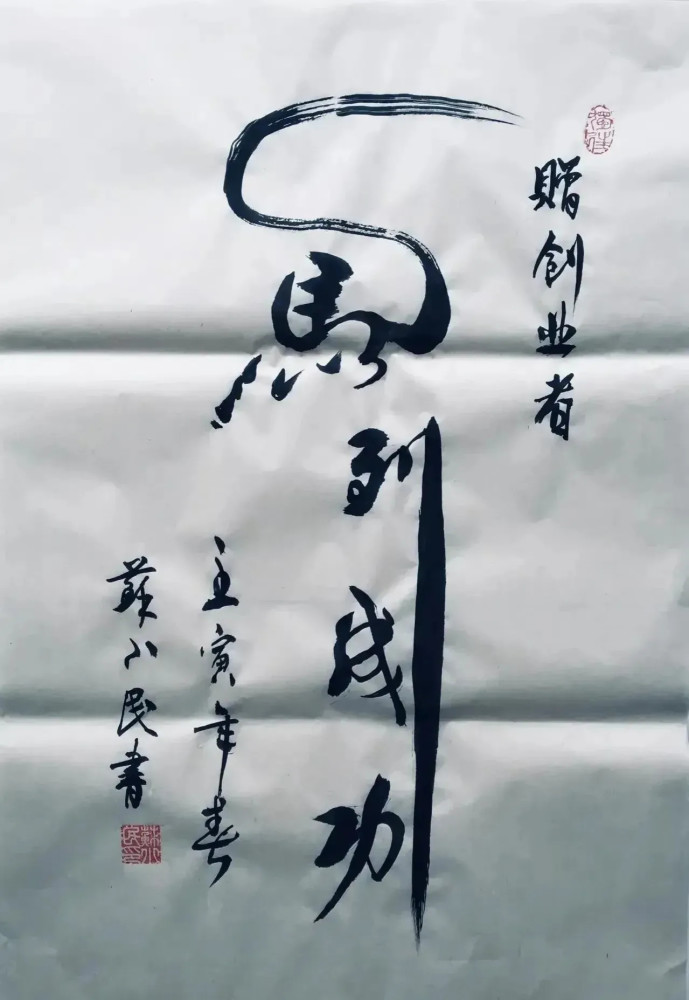 赠创业者
马到成功
壬寅年春
苏小民书